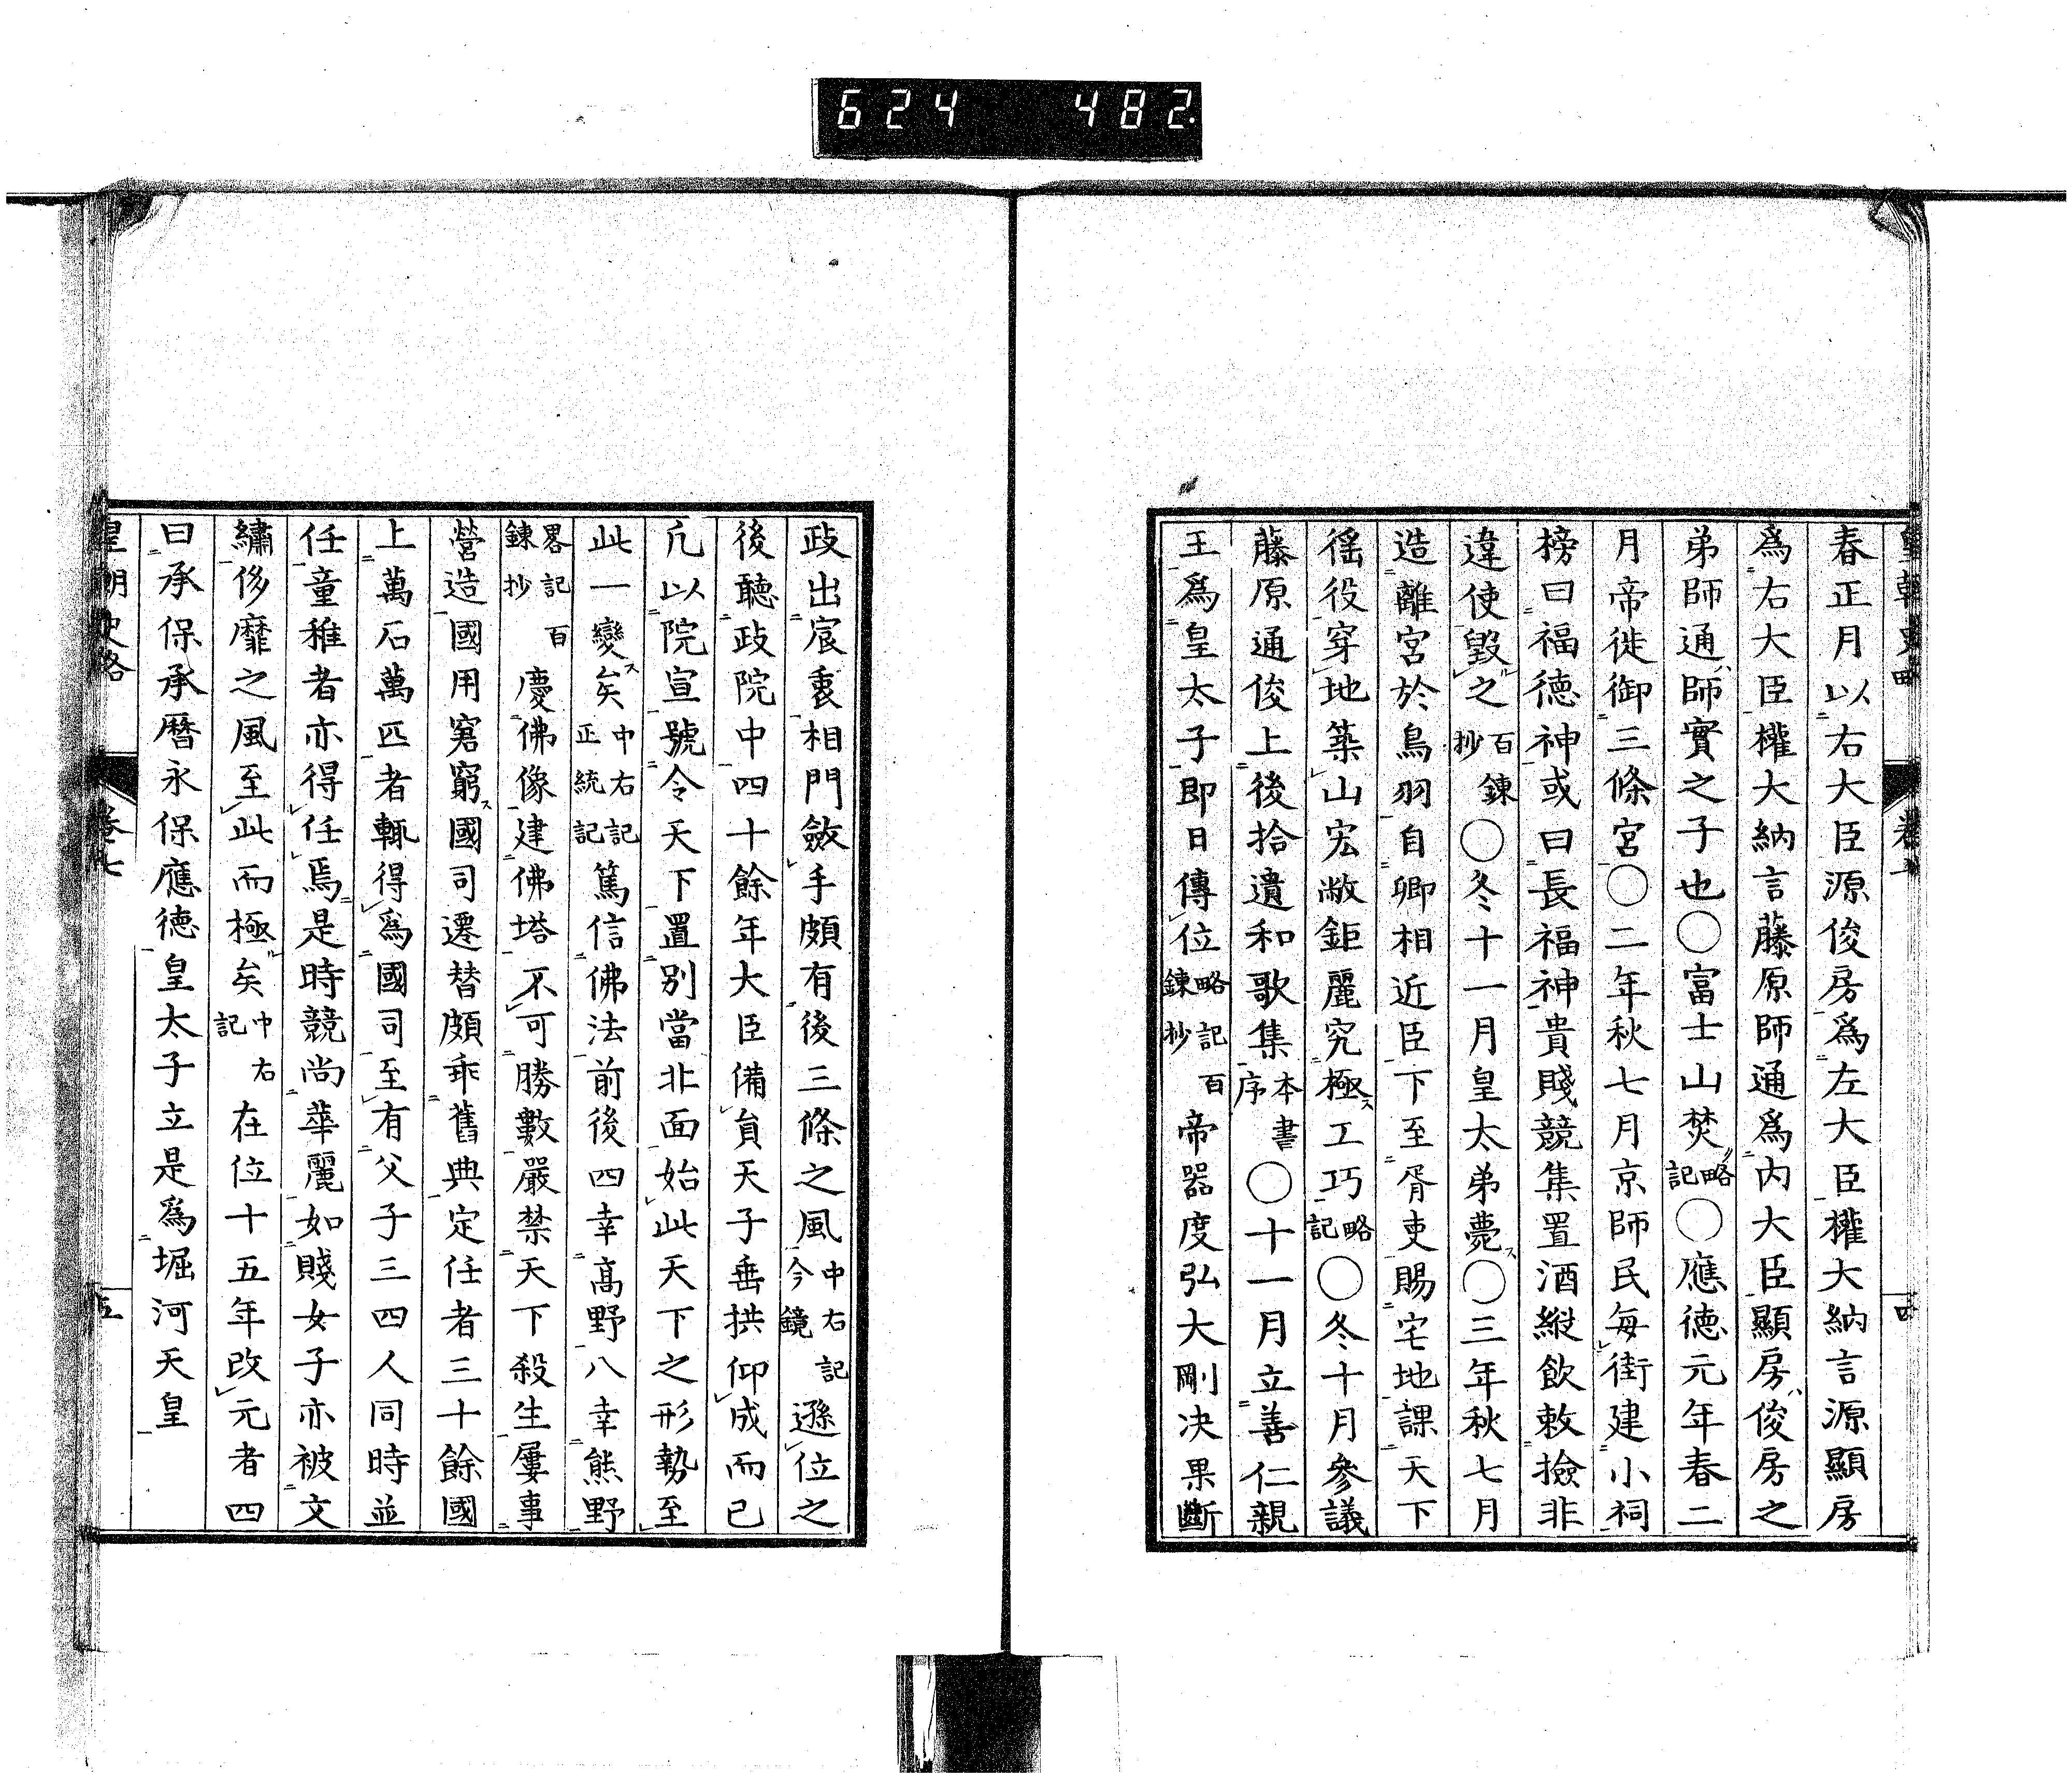 624 482
皇朝史略 卷七 四
春正月以右大臣源俊房爲左大臣權大納言源顯房
爲右大臣權大納言藤原師通爲内大臣顯房俊房之
弟師通師實之子也〇富士山焚略記〇應徳元年春二
月帝徙御三條宮〇二年秋七月京師民毎街建小祠
榜曰福徳神或曰長福神貴賤競集置酒縱飲敕撿非
違使毀之百鍊抄〇冬十一月皇太弟薨〇三年秋七月
造離宮於鳥羽自卿相近臣下至胥吏賜宅地課天下
徭役穿地築山宏敞鉅麗究極工巧略記〇冬十月參議
藤原通俊上後拾遺和歌集本書序〇十一月立善仁親
王爲皇太子即日傳位略記百鍊抄帝器度弘大剛决果斷
政出宸衷相門斂手頗有後三條之風中右記今鏡遜位之
後聽政院中四十餘年大臣備員天子垂拱仰成而已
凡以院宣號令天下置別當北面始此天下之形勢至
此一變矣中右記正統記篤信佛法前後四幸高野八幸熊野
畧記百鍊抄慶佛像建佛塔不可勝數嚴禁天下殺生屢事
營造國用窘窮國司遷替頗乖舊典定任者三十餘國
上萬石萬匹者輒得爲國司至有父子三四人同時並
任童稚者亦得任焉是時競尚華麗如賤女子亦被文
繡侈靡之風至此而極矣中右記在位十五年改元者四
曰承保承暦永保應徳皇太子立是爲堀河天皇
皇朝史略 卷七 五